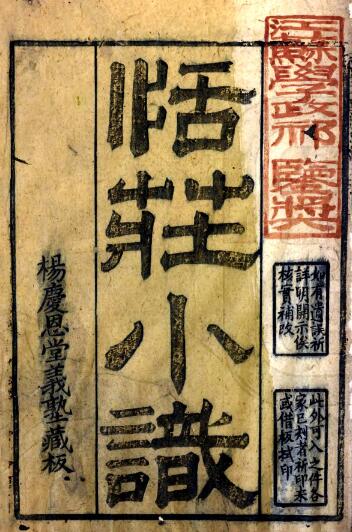 江蘇學政祁鑒獎
如有遺誤祈
詳明開示俟
核實補改
此外可入之件各
家已刻者祈印来
或借板拭印
恬莊小識
楊慶恩堂義塾藏板